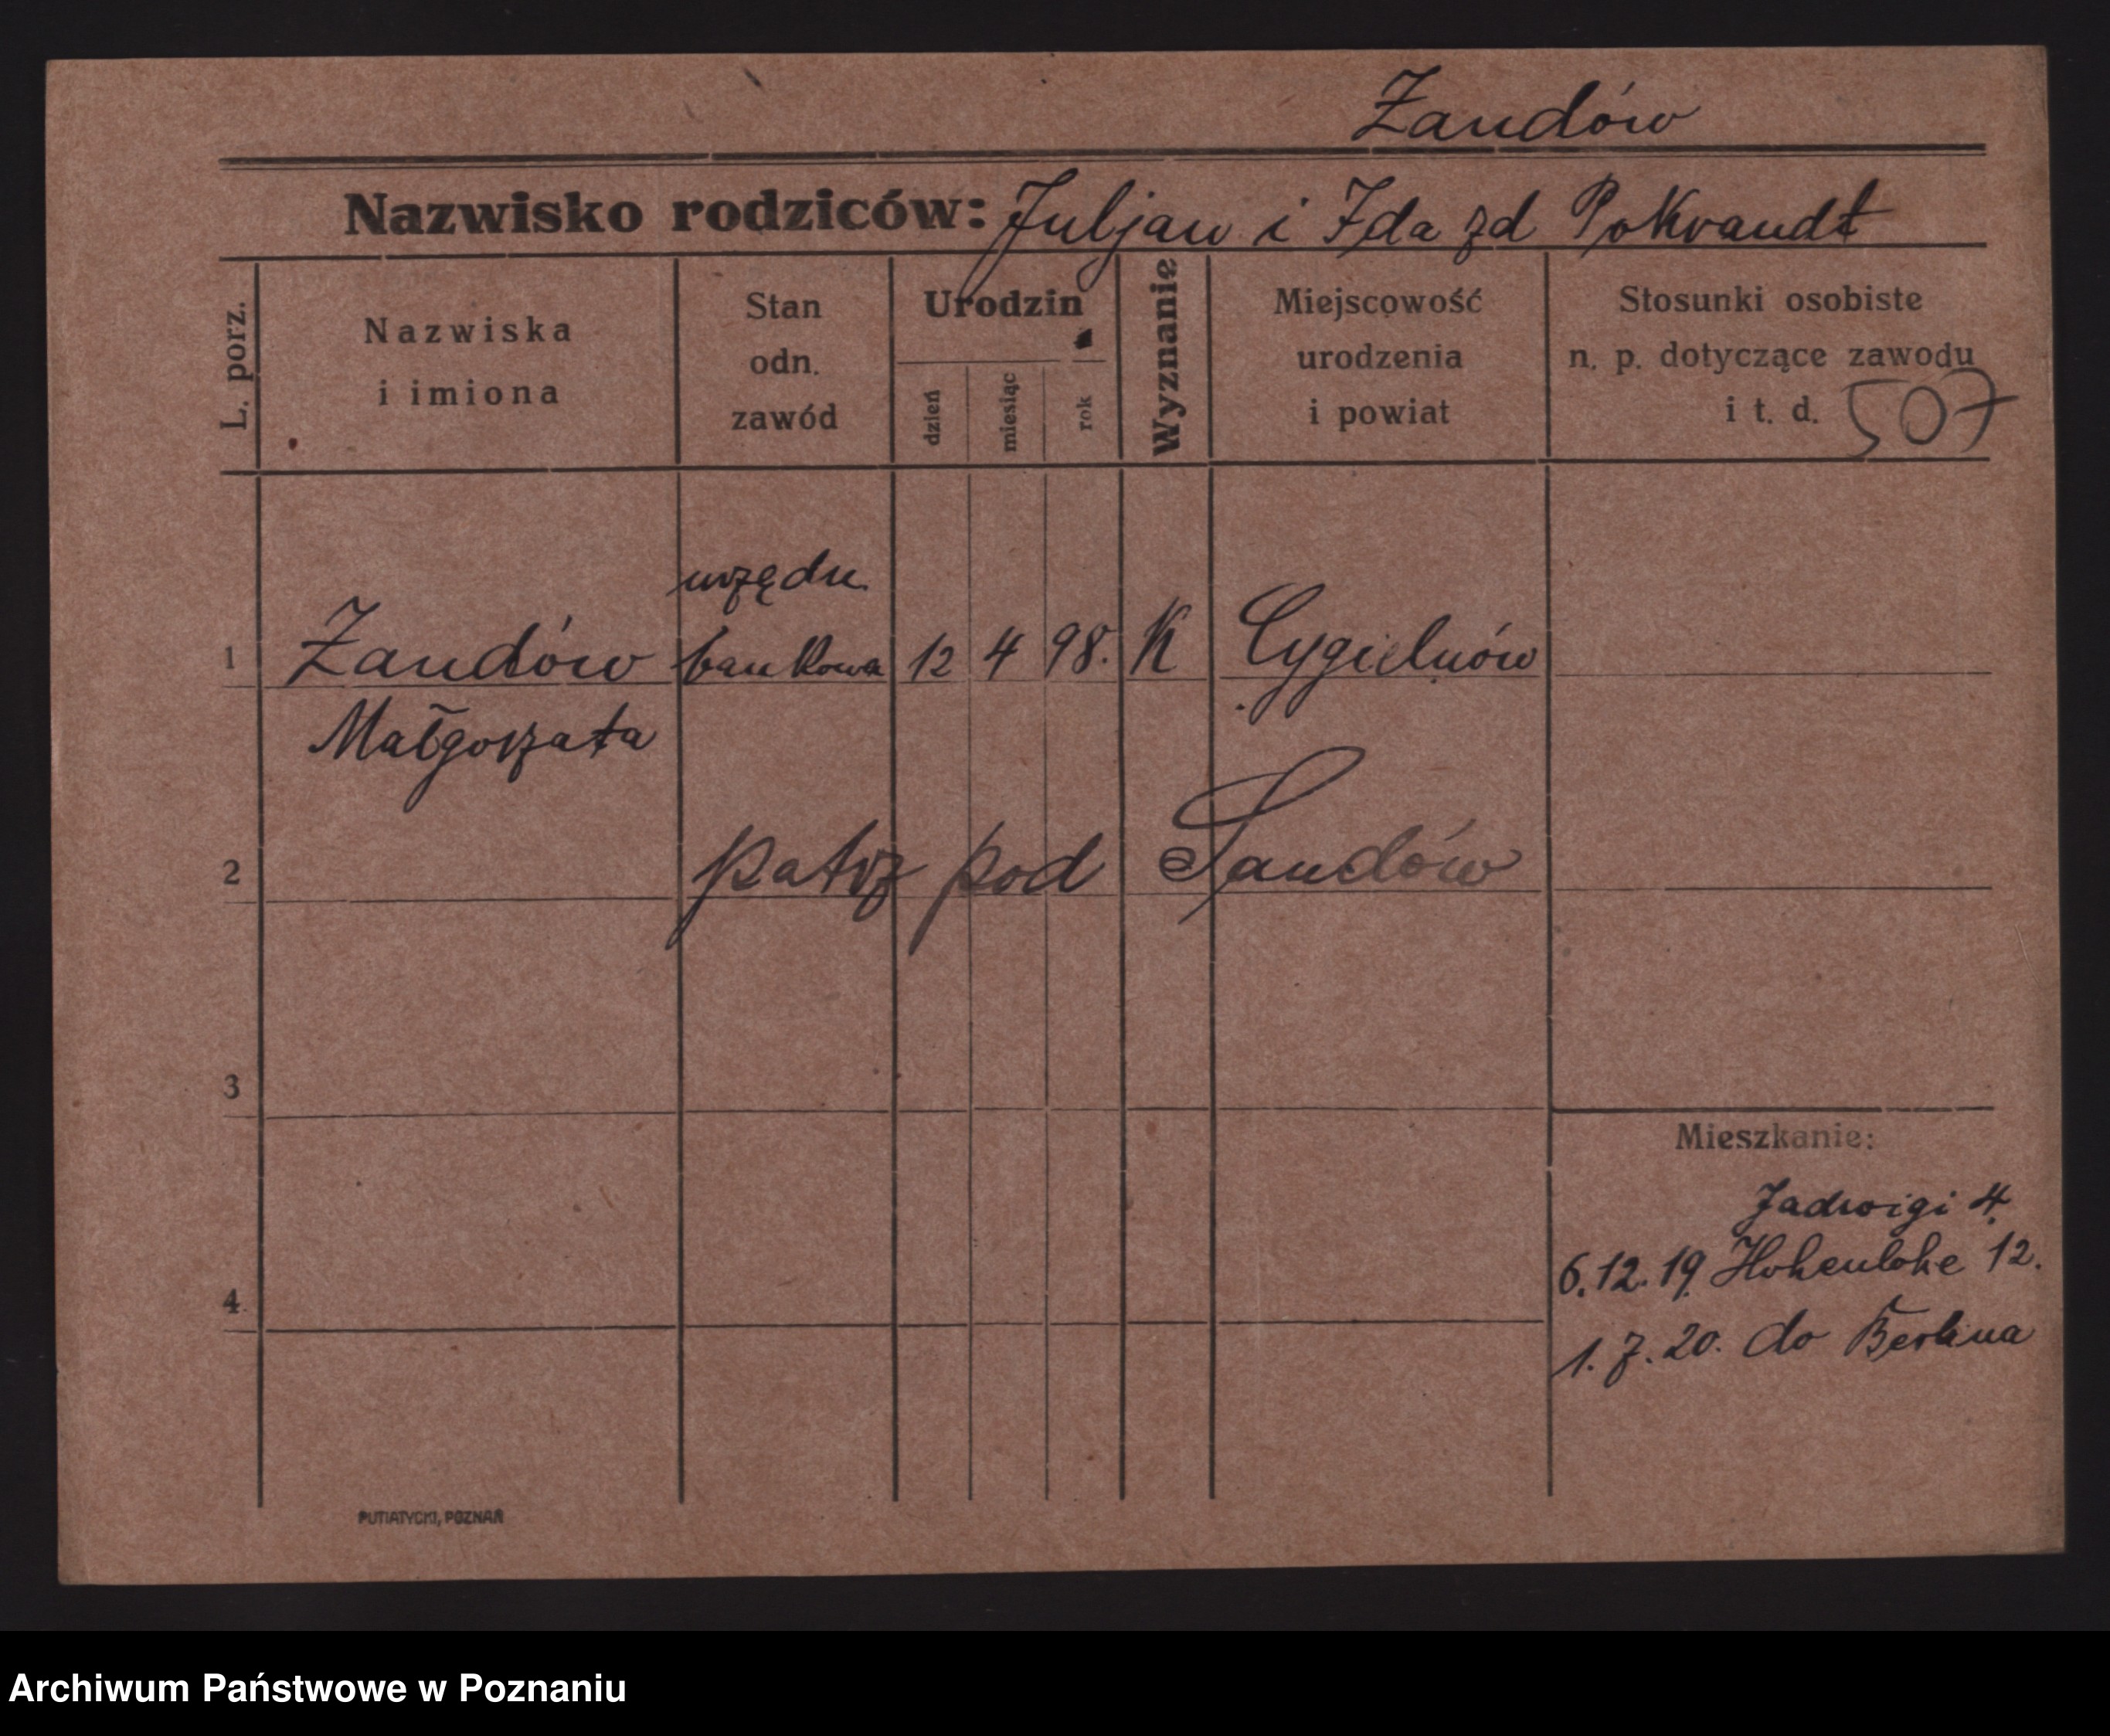 Zandów
Nazwisko rodziców: Juljan i Ida zd Pokrandt
L. porz.
Nazwiska
i imiona
Stan
odn.
zawód
Urodzin
dzień
miesiąc
rok
Wyznanie
Miejscowość
urodzenia
i powiat
Stosunki osobiste
n. p. dotyczące zawodu
i t. d. 507
urzędn.
1 Zandów bankowa 12 4 98. K Cygielnów
Małgorzata
2 patrz pod Sandów
3
Mieszkanie:
Jadwigi 4.
6.12.19. Hohenlohe 12.
4.
1.7.20. do Berlina
PUTIATYCKI, POZNAŃ
Archiwum Państwowe w Poznaniu